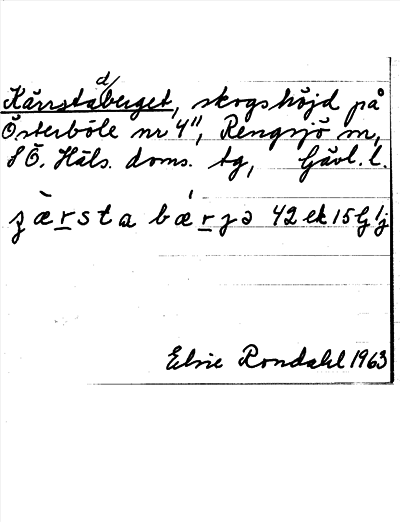 Kärrstadberget, skogshöjd på
Österböle nr 4", Rengsjö sn,
SÖ. Häls. doms. tg, Gävl. l.
bærgə 42 ek 15
Elsie Rondahl 1963